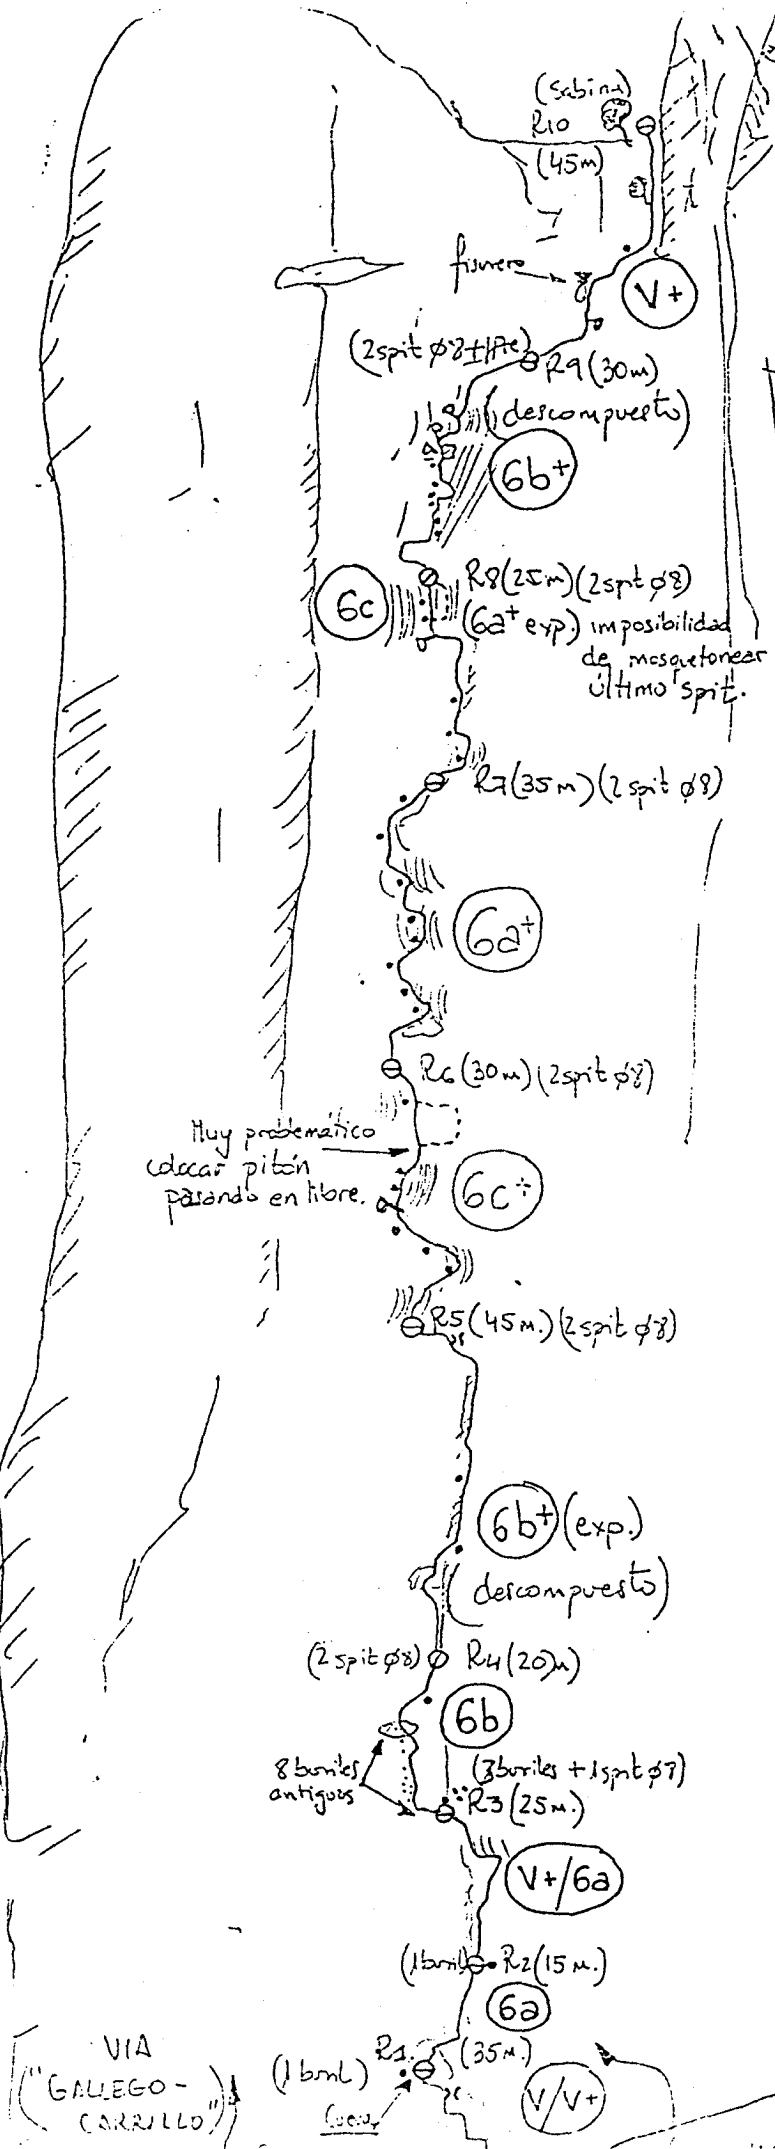 (sabina)
R10
(45m)
fisurero
V+
R9 (30m)
(descompuesto)
6b+
R8 (25m) (2 spit ø8)
6c
(6a+ exp.) imposibilidad
de mosquetonear
último spit.
R7 (35m) (2 spit ø8)
6a+
R6 (30m) (2 spit ø8)
Muy problemático
colocar pitón
pasando en libre.
6c+
R5 (45m.) (2 spit ø8)
6b+ (exp.)
(descompuesto)
(2 spit ø8) R4 (20m)
6b
8 buriles
antiguos
(3 buriles + 1 spit ø7)
R3 (25m.)
V+/6a
(1 buril) R2 (15m.)
6a
R1. (35m.)
(1 buril)
Cueva
V/V+
VIA
("GALLEGO-
CARRILLO")